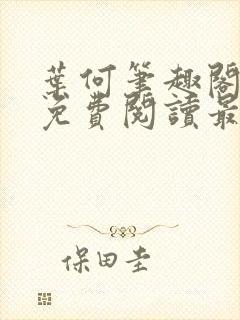 葉何筆趣閣
免費閱讀最
保田圭